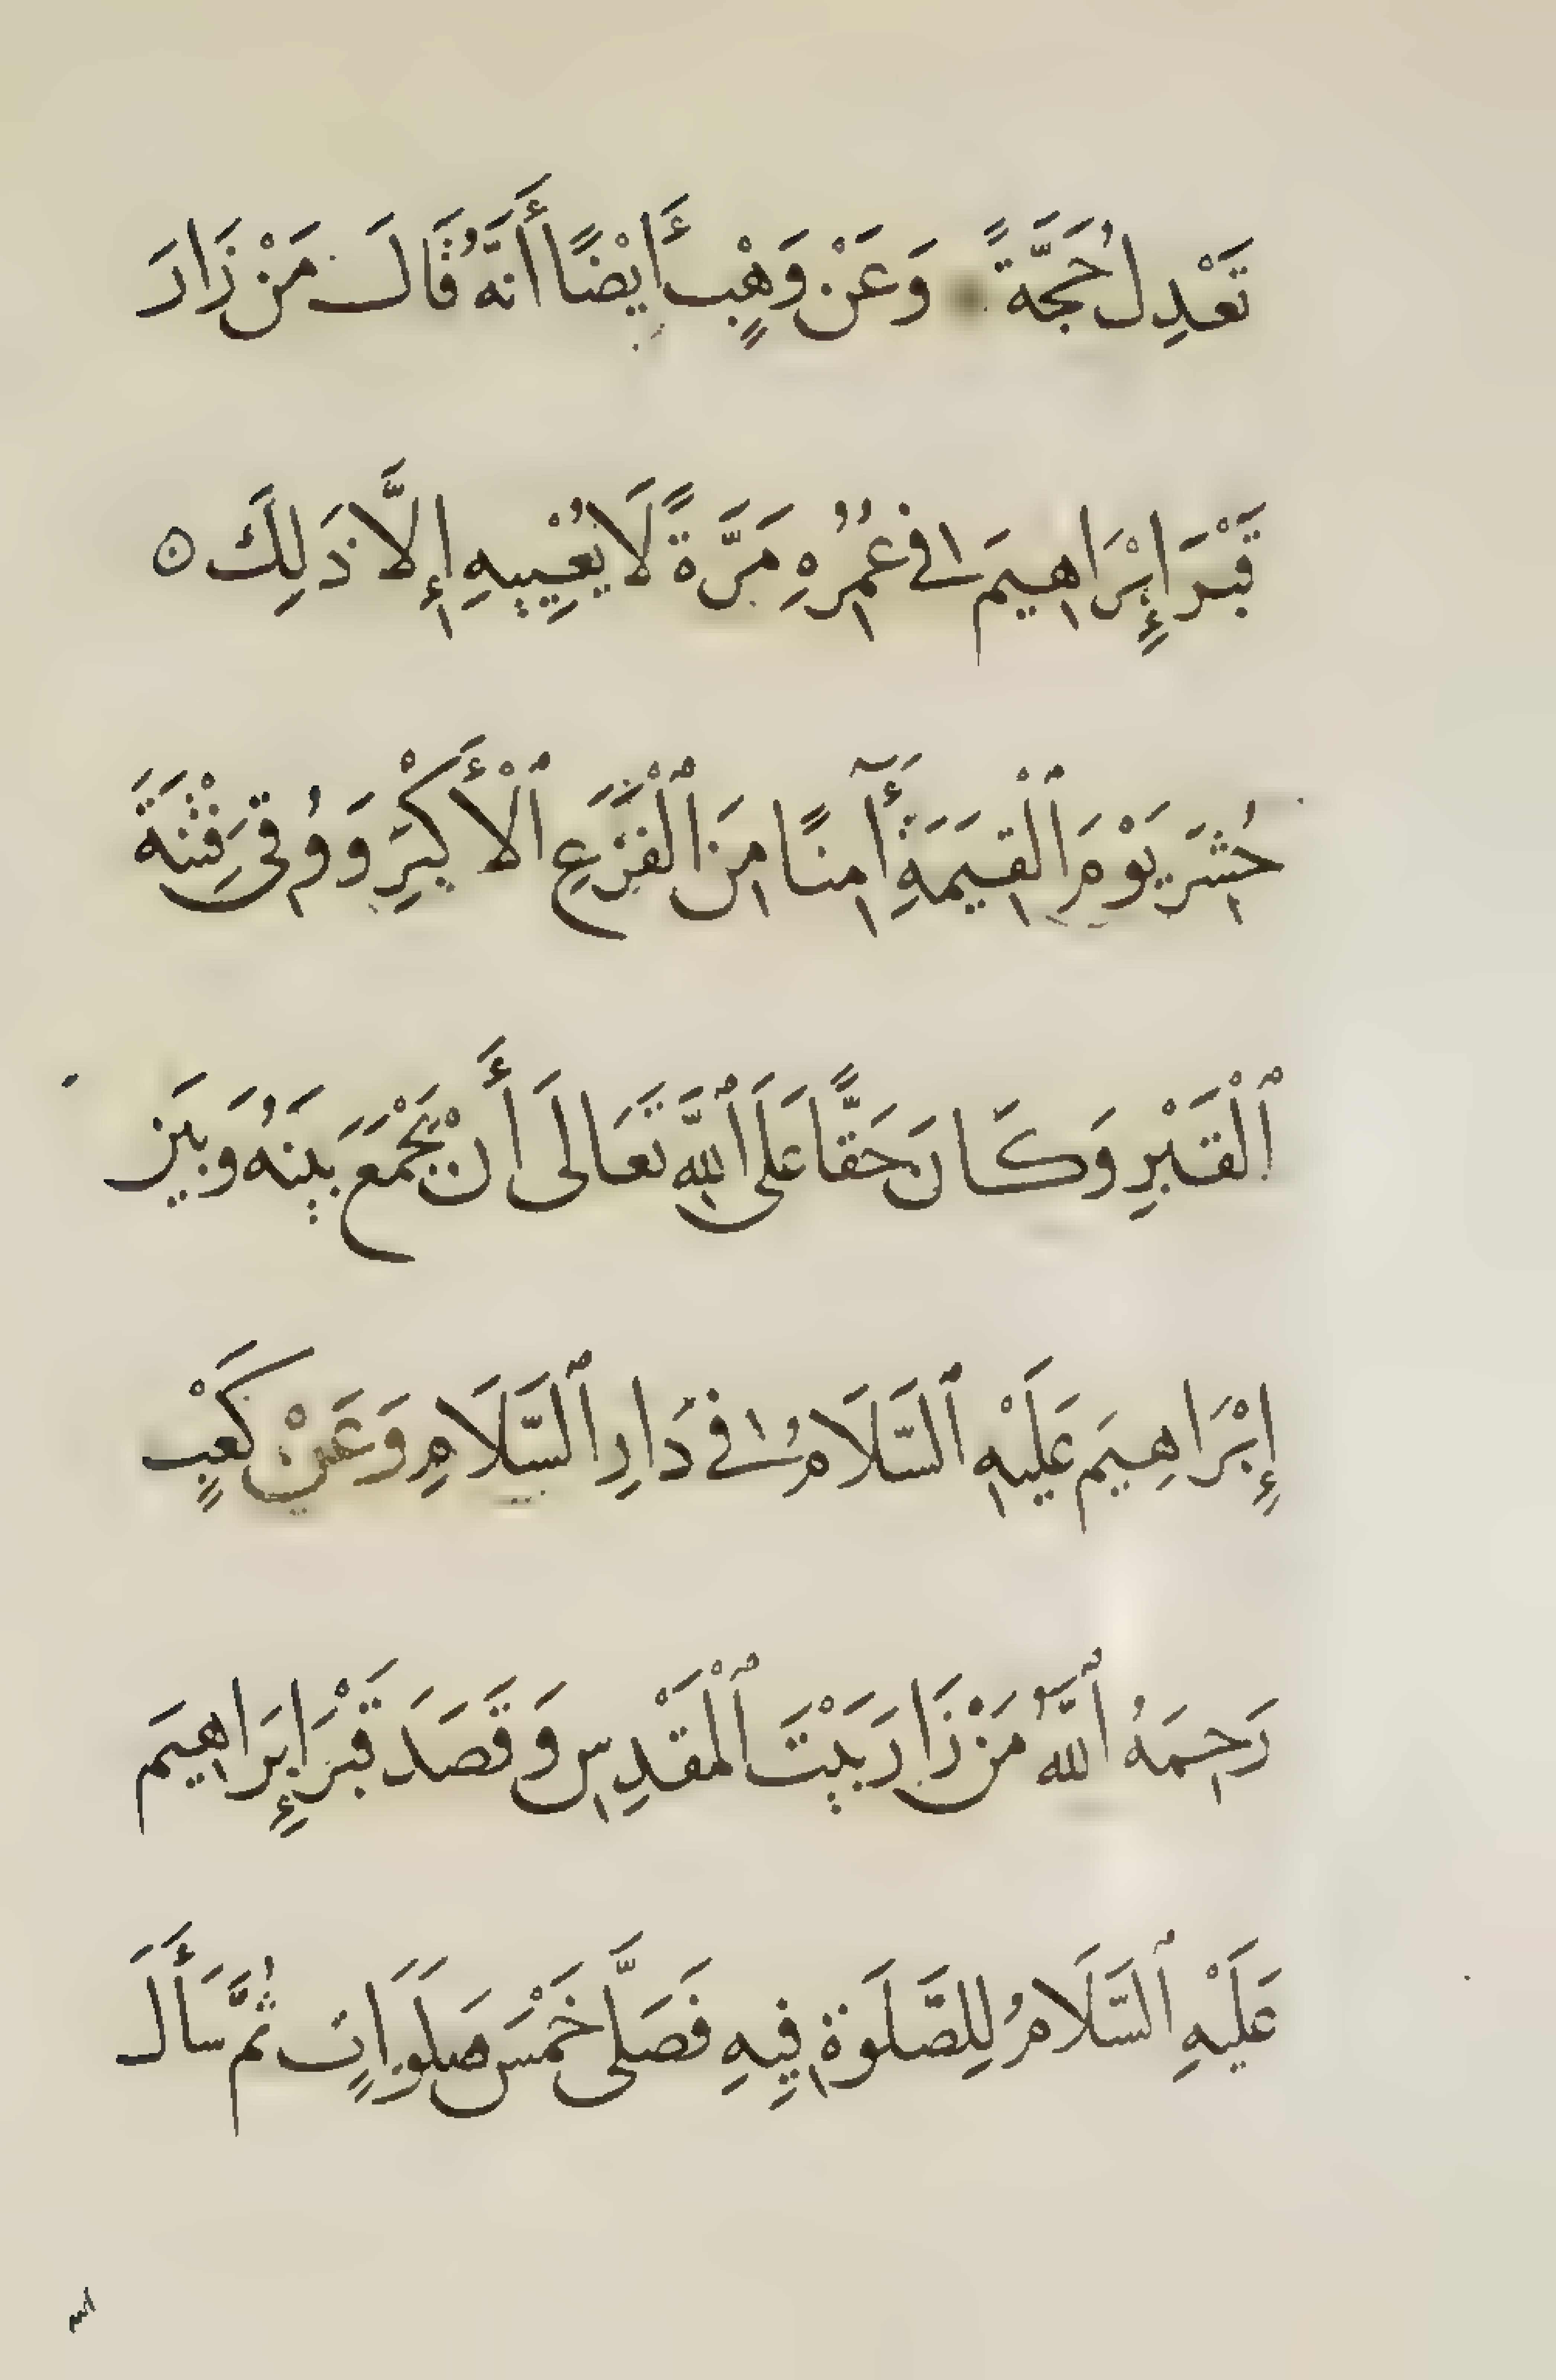 تَعْدِل حُجَّةً وَعَنْ وَهْبٍ أَيْضًا أَنَّهُ قَالَ مَنْ زَارَ
قَبْرَ إِبْرَاهِيمَ فِي عُمُرِهِ مَرَّةً لَا يُعْيِيهِ إِلَّا ذَلِكَ ۝
حُشِرَ يَوْمَ ٱلْقِيَمَةِ أَٓمِنًا مِنَ ٱلْفَزَعِ ٱلْأَكْبَرِ وَوُقِيَ فِتْنَةَ
ٱلْقَبْرِ وَكَانَ حَقًّا عَلَى ٱللَّهِ تَعَالَى أَنْ يَجْمَعَ بَيْنَهُ وَبَيْنَ
إِبْرَاهِيمَ عَلَيْهِ ٱلسَّلَامُ فِي دَارِ ٱلسَّلَامِ وَعَنْ كَعْبٍ
رَحِمَهُ ٱللَّهُ مَنْ زَارَ بَيْتَ ٱلْمَقْدِسِ وَقَصَدَ قَبْرَ إِبْرَاهِيمَ
عَلَيْهِ ٱلسَّلَامُ لِلصَّلَوةِ فِيهِ فَصَلَّى خَمْسَ صَلَوَاتٍ ثُمَّ سَأَلَ